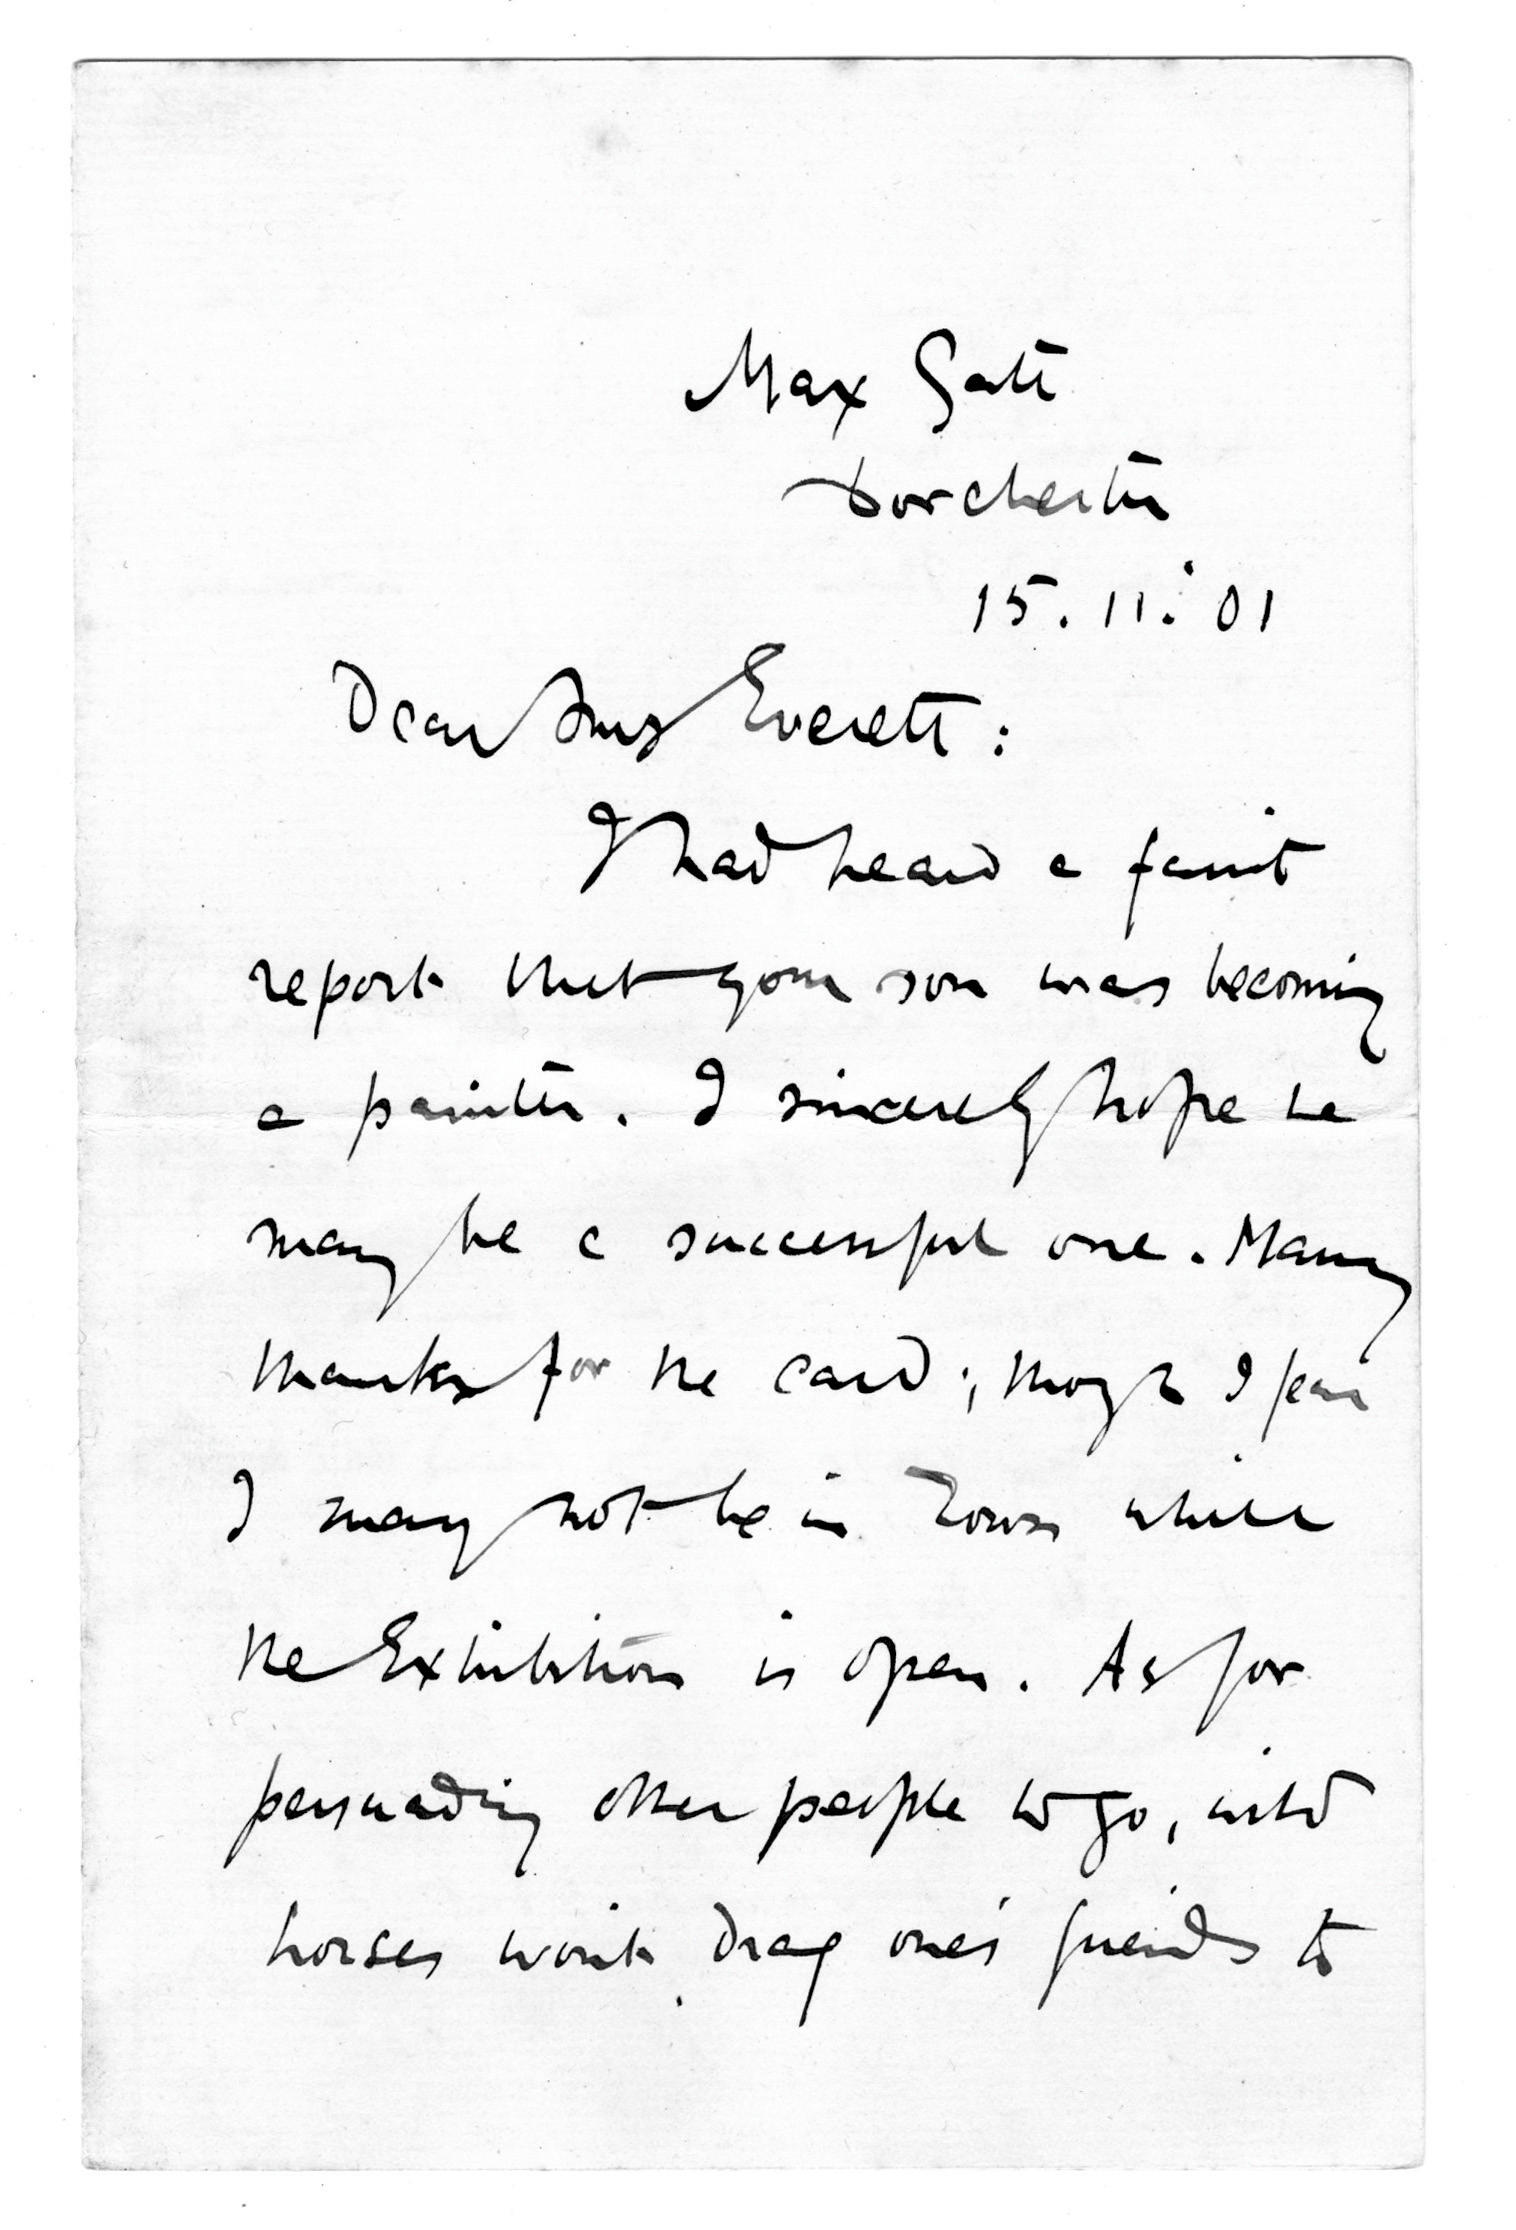 Max Gate
Dorchester
15. 11. '01
Dear Mrs Everett:
I had heard a faint
report that your son was becoming
a painter. I sincerely hope he
may be a successful one. Many
thanks for the card; though I fear
I may not be in Town while
the Exhibition is open. As for
persuading other people to go, wild
horses won't drag one's friends to